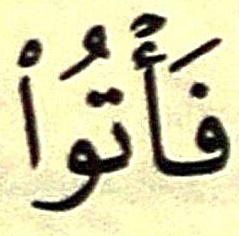 فَأْتُواْ